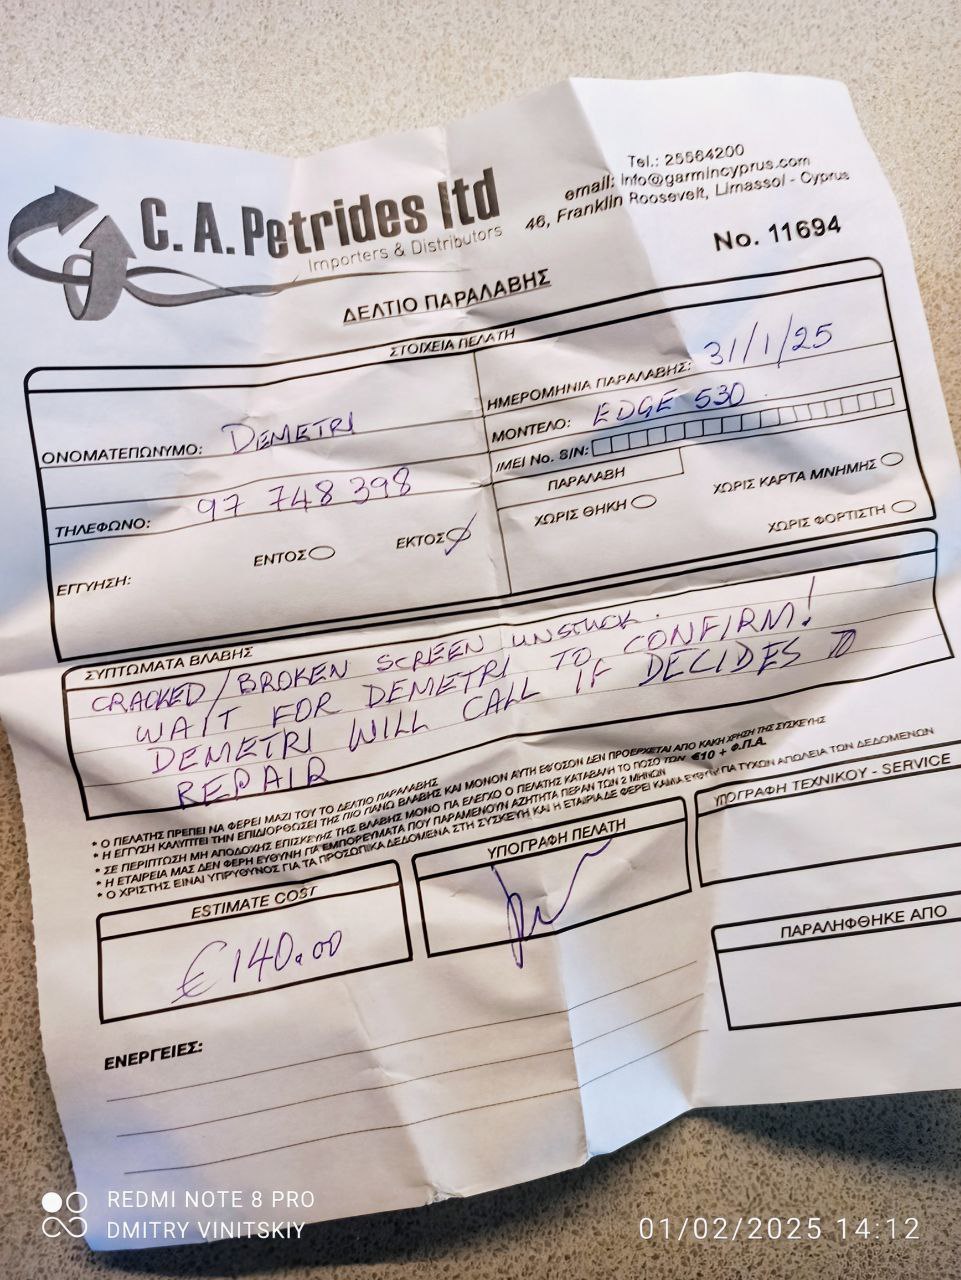 C. A. Petrides ltd
Importers & Distributors
Tel.: 25564200
email: info@garmincyprus.com
46, Franklin Roosevelt, Limassol - Cyprus
No. 11694
ΔΕΛΤΙΟ ΠΑΡΑΛΑΒΗΣ
ΣΤΟΙΧΕΙΑ ΠΕΛΑΤΗ
ΟΝΟΜΑΤΕΠΩΝΥΜΟ: DEMETRI
ΤΗΛΕΦΩΝΟ: 97 748 398
ΕΓΓΥΗΣΗ: ΕΝΤΟΣ ΕΚΤΟΣ
ΗΜΕΡΟΜΗΝΙΑ ΠΑΡΑΛΑΒΗΣ: 31/1/25
ΜΟΝΤΕΛΟ: EDGE 530
IMEI No. S/N:
ΠΑΡΑΛΑΒΗ
ΧΩΡΙΣ ΘΗΚΗ ΧΩΡΙΣ ΚΑΡΤΑ ΜΝΗΜΗΣ
ΧΩΡΙΣ ΦΟΡΤΙΣΤΗ
ΣΥΠΤΩΜΑΤΑ ΒΛΑΒΗΣ
CRACKED/BROKEN SCREEN UNSTUCK.
WAIT FOR DEMETRI TO CONFIRM!
DEMETRI WILL CALL IF DECIDES TO
REPAIR
* Ο ΠΕΛΑΤΗΣ ΠΡΕΠΕΙ ΝΑ ΦΕΡΕΙ ΜΑΖΙ ΤΟΥ ΤΟ ΔΕΛΤΙΟ ΠΑΡΑΛΑΒΗΣ
* Η ΕΓΓΥΣΗ ΚΑΛΥΠΤΕΙ ΤΗΝ ΕΠΙΔΙΟΡΘΩΣΗ ΤΗΣ ΠΙΟ ΠΑΝΩ ΒΛΑΒΗΣ ΚΑΙ ΜΟΝΟΝ ΑΥΤΗ ΕΦΟΣΟΝ ΔΕΝ ΠΡΟΕΡΧΕΤΑΙ ΑΠΟ ΚΑΚΗ ΧΡΗΣΗ ΤΗΣ ΣΥΣΚΕΥΗΣ
* ΣΕ ΠΕΡΙΠΤΩΣΗ ΜΗ ΑΠΟΔΟΧΗΣ ΕΠΙΣΚΕΥΗΣ ΤΗΣ ΒΛΑΒΗΣ ΜΟΝΟ ΓΙΑ ΕΛΕΓΧΟ Ο ΠΕΛΑΤΗΣ ΚΑΤΑΒΑΛΗ ΤΟ ΠΟΣΟ ΤΩΝ €10 + Φ.Π.Α.
* Η ΕΤΑΙΡΕΙΑ ΜΑΣ ΔΕΝ ΦΕΡΗ ΕΥΘΥΝΗ ΓΙΑ ΕΜΠΟΡΕΥΜΑΤΑ ΠΟΥ ΠΑΡΑΜΕΝΟΥΝ ΑΖΗΤΗΤΑ ΠΕΡΑΝ ΤΩΝ 2 ΜΗΝΩΝ
* Ο ΧΡΙΣΤΗΣ ΕΙΝΑΙ ΥΠΡΥΘΥΝΟΣ ΓΙΑ ΤΑ ΠΡΟΣΩΠΙΚΑ ΔΕΔΟΜΕΝΑ ΣΤΗ ΣΥΣΚΕΥΗ ΚΑΙ Η ΕΤΑΙΡΙΑ ΔΕ ΦΕΡΕΙ ΚΑΜΙΑ ΕΥΘΥΝ ΓΙΑ ΤΥΧΟΝ ΑΠΩΛΕΙΑ ΤΩΝ ΔΕΔΟΜΕΝΩΝ
ESTIMATE COST
€140.00
ΥΠΟΓΡΑΦΗ ΠΕΛΑΤΗ
ΥΠΟΓΡΑΦΗ ΤΕΧΝΙΚΟΥ - SERVICE
ΠΑΡΑΛΗΦΘΗΚΕ ΑΠΟ
ΕΝΕΡΓΕΙΕΣ:
REDMI NOTE 8 PRO
DMITRY VINITSKIY
01/02/2025 14:12